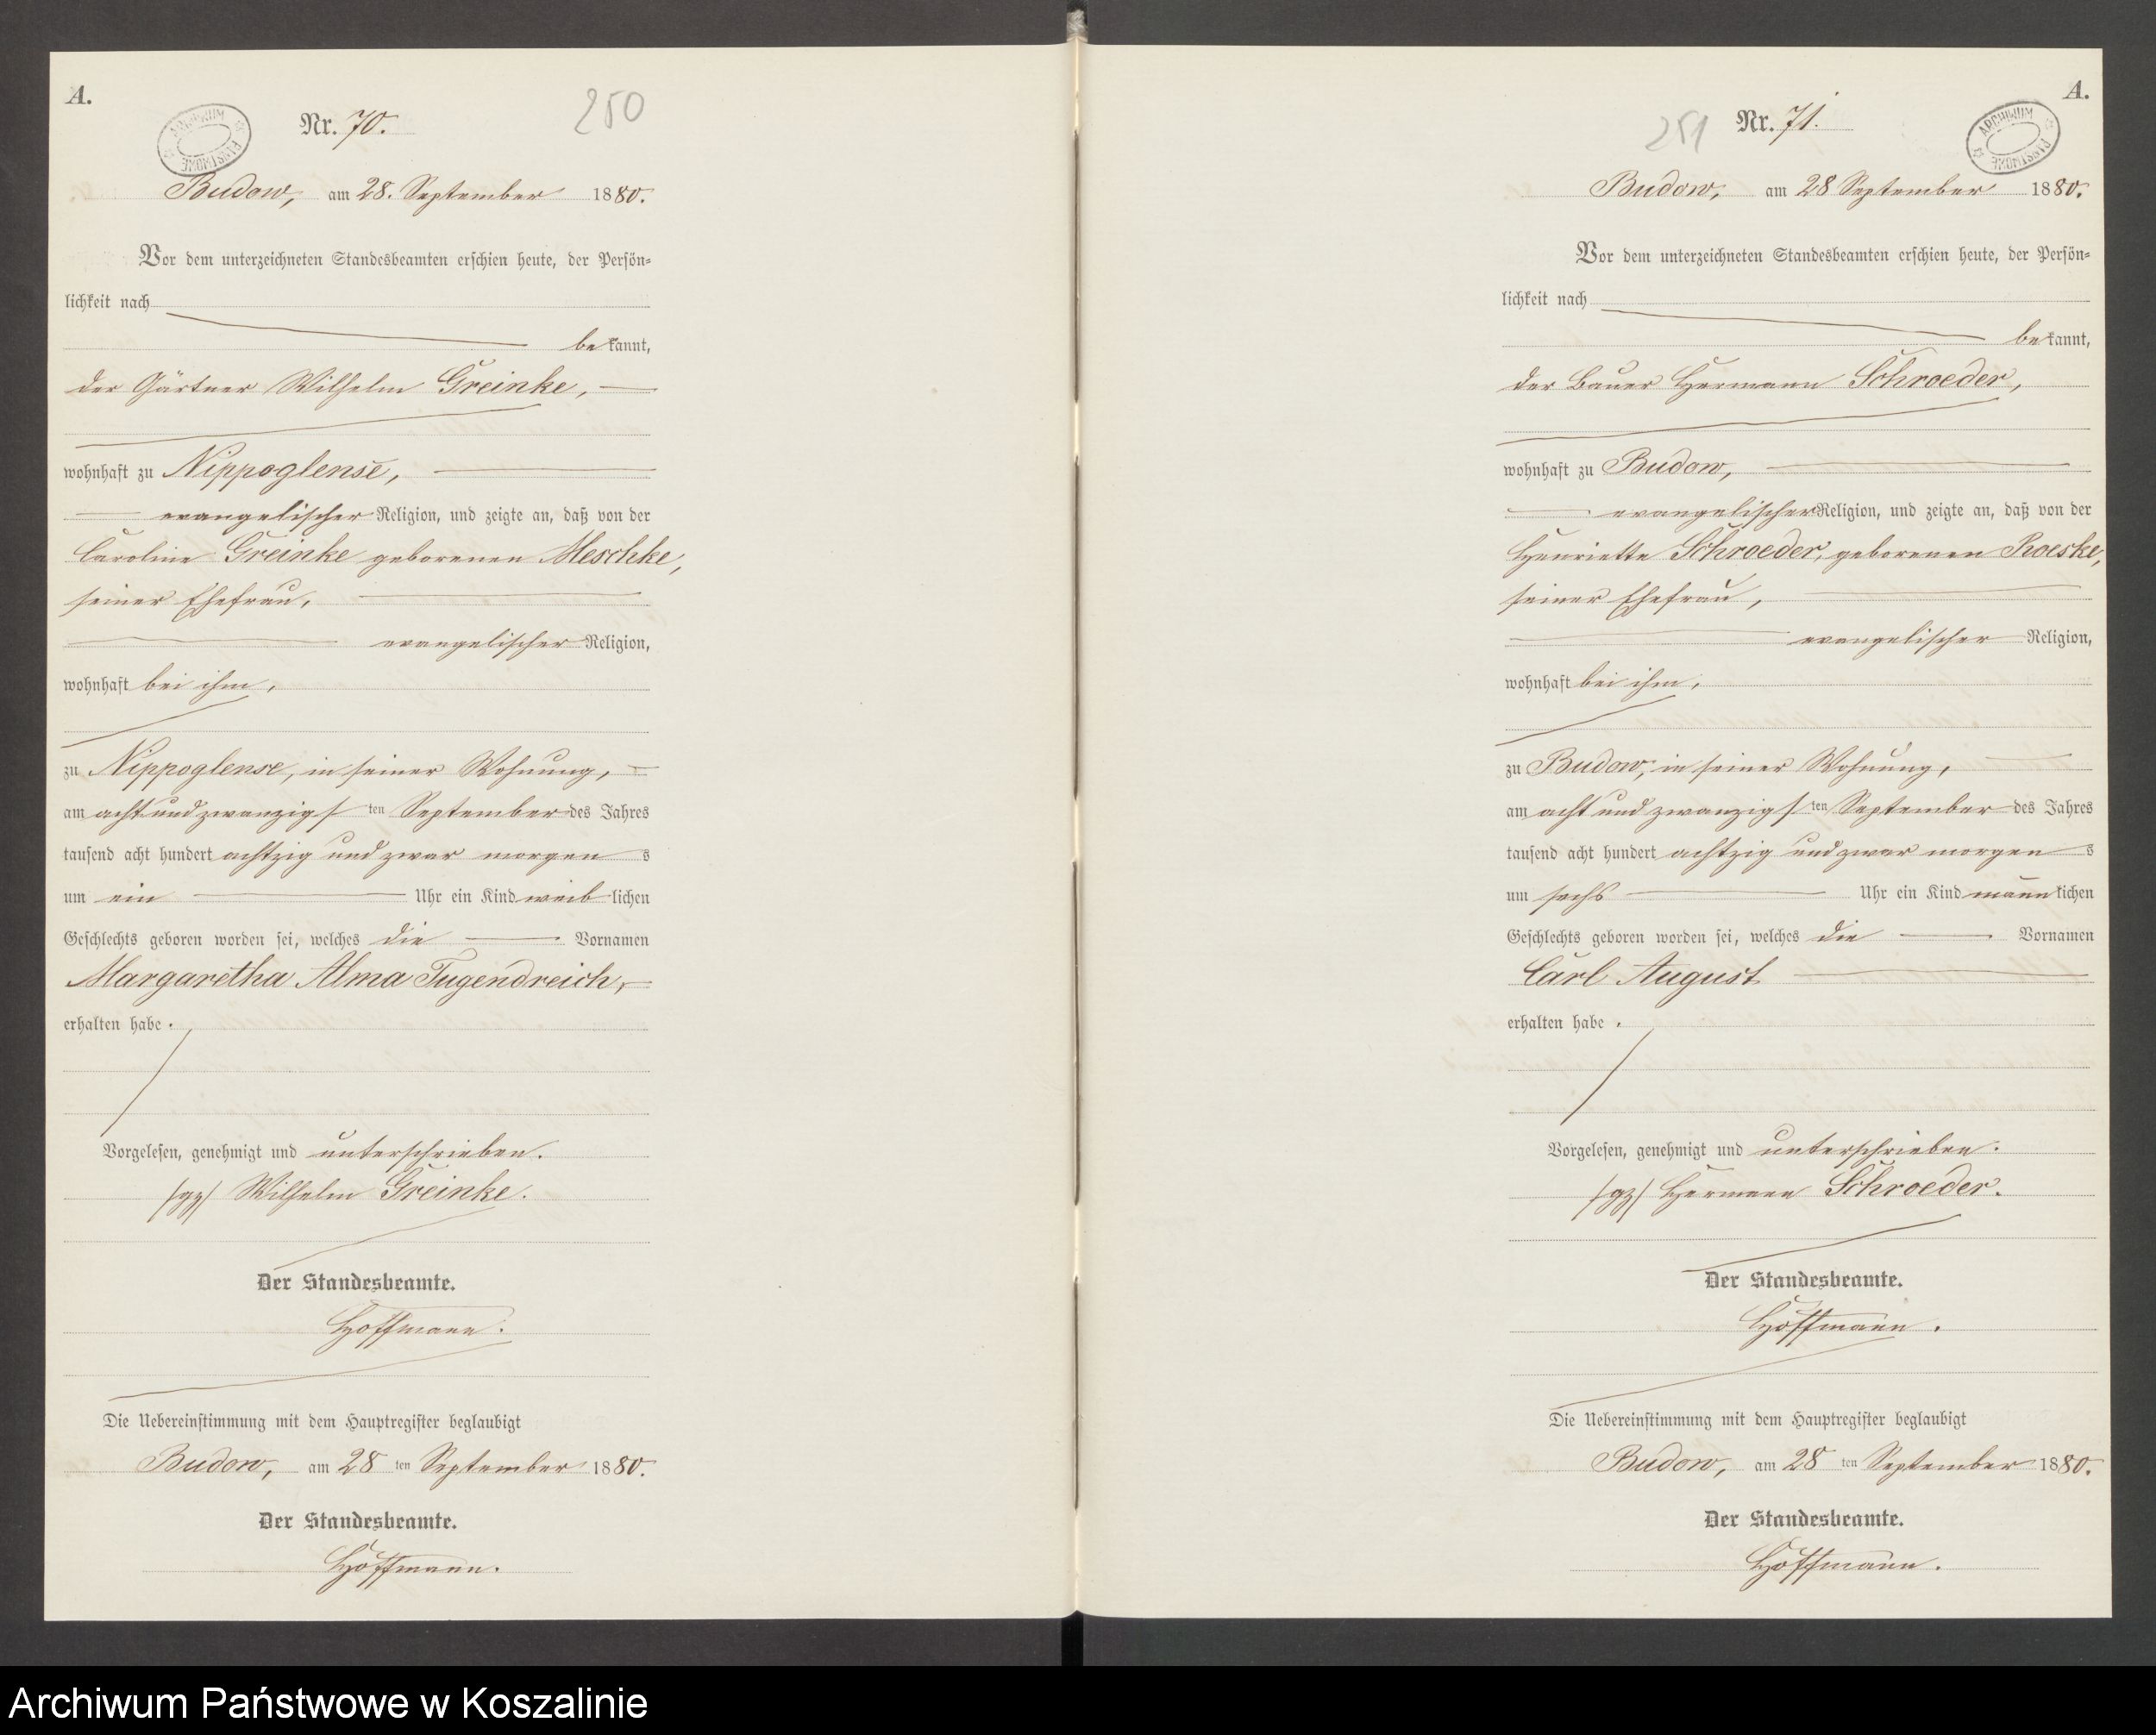 A.
Nr. 70.
250
ARCHIWUM PAŃSTWOWE
Budow, am 28. September 1880.
Vor dem unterzeichneten Standesbeamten erschien heute, der Persön-
lichkeit nach
bekannt,
der Gärtner Wilhelm Greinke,
wohnhaft zu Nippoglense,
evangelischer Religion, und zeigte an, daß von der
Caroline Greinke geborenen Meschke,
seiner Ehefrau,
evangelischer Religion,
wohnhaft bei ihm,
zu Nippoglense, in seiner Wohnung,
am acht und zwanzigsten September des Jahres
tausend acht hundert achtzig und zwar morgens
um ein Uhr ein Kind weiblichen
Geschlechts geboren worden sei, welches die Vornamen
Margaretha Alma Tugendreich,
erhalten habe.
Vorgelesen, genehmigt und unterschrieben.
/gz/ Wilhelm Greinke.
Der Standesbeamte.
Hoffmann.
Die Uebereinstimmung mit dem Hauptregister beglaubigt
Budow, am 28 ten September 1880.
Der Standesbeamte.
Hoffmann.
A.
251
Nr. 71.
ARCHIWUM PAŃSTWOWE
Budow, am 28 September 1880.
Vor dem unterzeichneten Standesbeamten erschien heute, der Persön-
lichkeit nach
bekannt,
der Bauer Hermann Schroeder,
wohnhaft zu Budow,
evangelischer Religion, und zeigte an, daß von der
Henriette Schroeder, geborenen Roeske,
seiner Ehefrau,
evangelischer Religion,
wohnhaft bei ihm,
zu Budow, in seiner Wohnung,
am acht und zwanzigsten September des Jahres
tausend acht hundert achtzig und zwar morgens
um sechs Uhr ein Kind männlichen
Geschlechts geboren worden sei, welches die Vornamen
Carl August
erhalten habe.
Vorgelesen, genehmigt und unterschrieben.
/gz/ Hermann Schroeder.
Der Standesbeamte.
Hoffmann.
Die Uebereinstimmung mit dem Hauptregister beglaubigt
Budow, am 28 ten September 1880.
Der Standesbeamte.
Hoffmann.
Archiwum Państwowe w Koszalinie